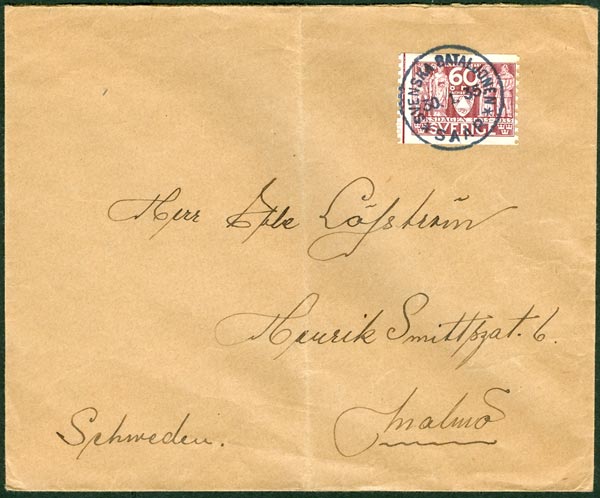 SVENSKA BATALJONEN
60
30.1.35
RIKSDAGEN 1435 1935
SVERIGE
* SAAR *
Herr Löfström
Henrik Smittsgat. 6.
Malmö
Schweden.